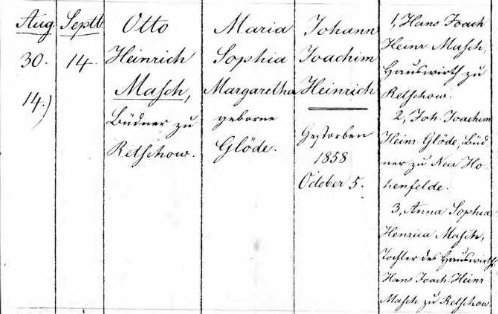 Aug
30.
14.)
Septb
14.
Otto
Heinrich
Masch,
Büdner zu
Retschow.
Maria
Sophia
Margaretha
geborne
Glöde.
Johann
Joachim
Heinrich
Gestorben
1858
October 5.
1, Hans Joach
Heinr Masch,
Hauswirth zu
Retschow.
2, Joh. Joachim
Heinr Glöde, Büd
ner zu Neu Ho-
henfelde.
3, Anna Sophia
Henrica
Tochter des Hauswirths
Hans Joach. Heinr
Masch zu Retschow